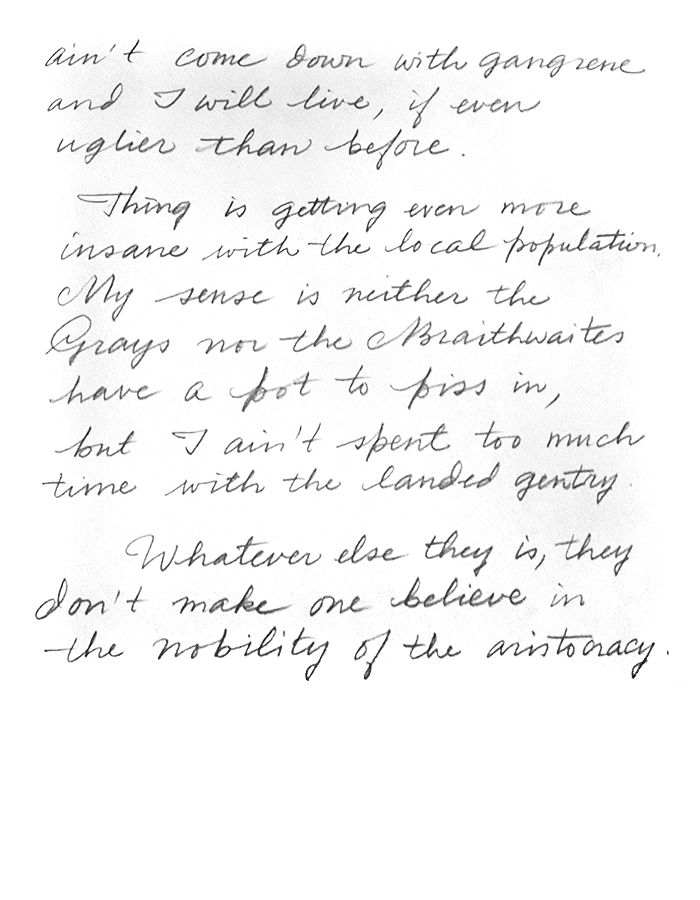 ain't come down with gangrene
and I will live, if even
uglier than before.
Thing is getting even more
insane with the local population.
My sense is neither the
Grays nor the Braithwaites
have a pot to piss in,
but I ain't spent too much
time with the landed gentry.
Whatever else they is, they
don't make one believe in
the nobility of the aristocracy.